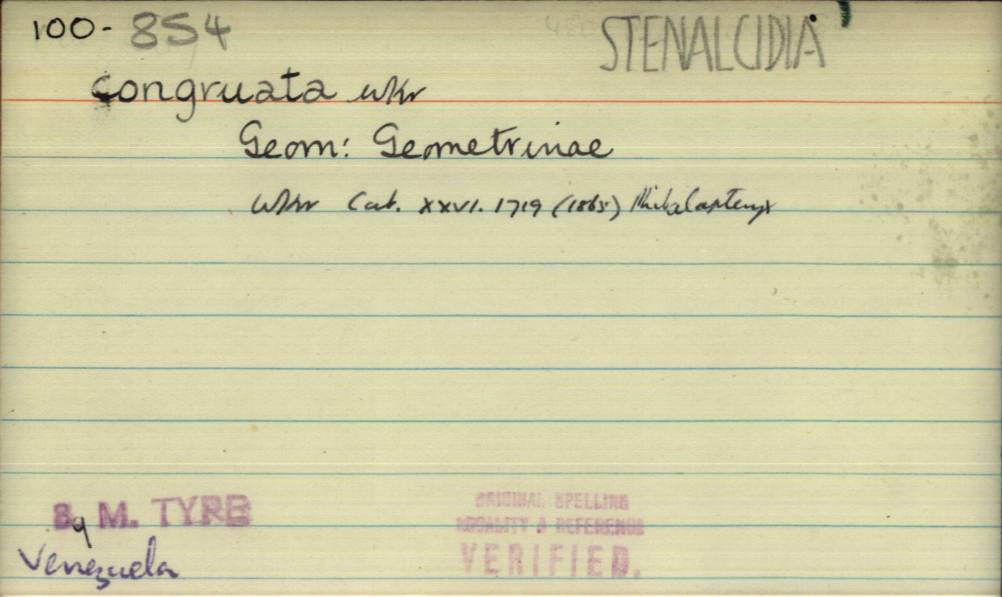 100- 854
STENALCIDIA
congruata wkr
Geom: Geometrinae
wkr Cat. XXVI. 1719 (1865) Phibalapteryx
B. M. TYPE
Venezuela
ORIGINAL SPELLING
LOCALITY & REFERENCE
VERIFIED.